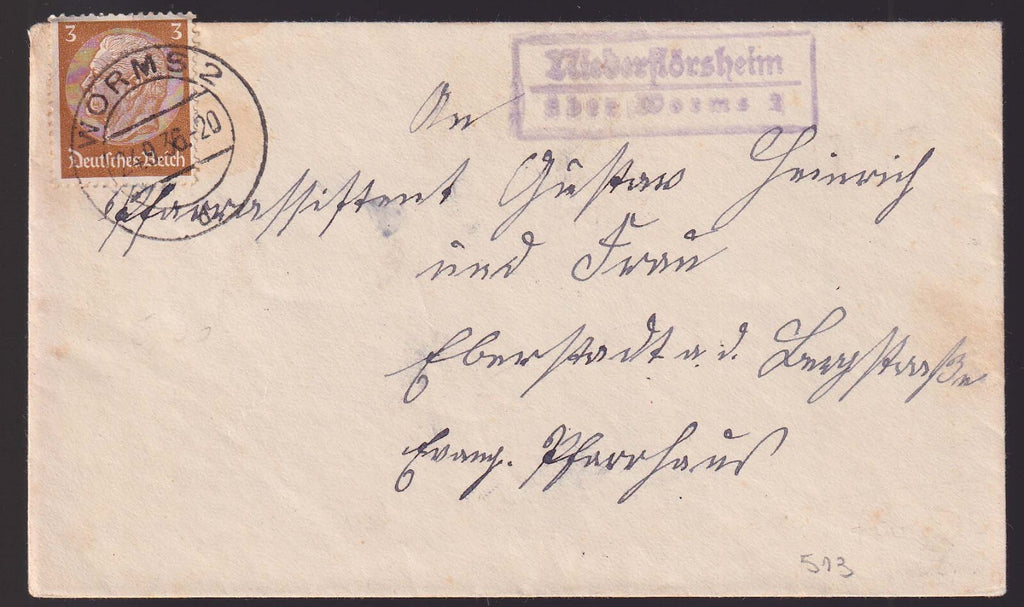 3 3
Deutsches Reich
WORMS 2
9.36.-20
Niederflörsheim
über Worms 2
An
Pfarrassistent Gustav Heinrich
und Frau
Eberstadt a. d. Bergstraße
Evang. Pfarrhaus
513